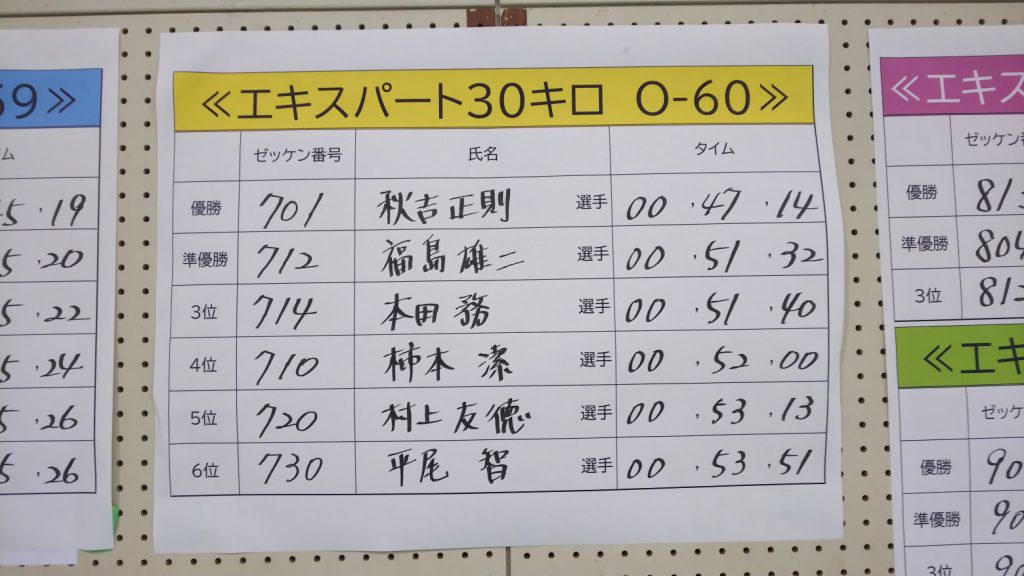 ≪エキスパート30キロ O-60≫
ゼッケン番号 氏名 タイム
優勝 701 秋吉正則 選手 00.47.14
準優勝 712 福島雄二 選手 00.51.32
3位 714 本田 務 選手 00.51.40
4位 710 柿本 潔 選手 00.52.00
5位 720 村上友徳 選手 00.53.13
6位 730 平尾 智 選手 00.53.51
59≫
イム
5.19
5.20
5.22
5.24
5.26
5.26
≪エキス
ゼッケン番
優勝 813
準優勝 804
3位 812
≪エキ
ゼッケ
優勝 90
準優勝 90
3位 90